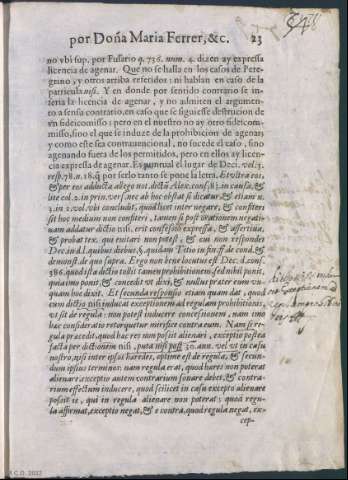 por Doña Maria Ferrer, &c. 23
no vbi sup. por Fusario q. 736. num. 4. dizen ay expressa
licencia de agenar. Que no se halla en los casos de Pere-
grino, y otros arriba referidos: ni hablan en caso de la
particula nisi. Y en donde por sentido contrario se in-
feria la licencia de agenar, y no admiten el argumen-
to a sensu contrario, en caso que se siguiesse destrucion de
vn fideicomisso; pero en el nostro no ay otro fideicom-
misso, sino el que se induze de la prohibicion de agenar;
y como este sea contrauencional, no sucede el caso, sino
agenando fuera de los permitidos, pero en ellos ay licen-
cia expressa de agenar. Es puntual el lugar de Deci. vol. 3.
resp. 78. n. 18. q por serlo tanto se pone la letra. Et vltra ea,
& per eos adducta allego not. dictũ Alex. cons. 83. in causa, &
lite col. 2. in prin. vers. nec ab hoc obstat si dicatur, & etiam n.
3. in 2. vol. vbi concludit, quod licet inter negare, & confiteri
sit hoc medium non confiteri, tamen si post orationem negati-
uam addatur dictio nisi, erit confessio expressa, & assertiua,
& probat tex. qui euitari non potest, & cum non respondet
Dec. in d. l. quibus diebus, §. quidam Titio in fin. ff. de cond. &
demonst. de quo supra. Ergo non bene locutus est Dec. d. cons.
386. quod ista dictio tollit tamen prohibitionem, sed nihil ponit,
quia imo ponit, & concedit vt dixi, & nullus prater eum vn-
quam hoc dixit. Et secunda responsio etiam quam dat, quod
cum dictio nisi inducat exceptionem ad regulam prohibitionis,
vt sit de regula: non potest inducere concessionem, nam imo
hac consideratio retorquetur mirifice contra eum. Nam si re-
gula pracedit, quod hac res non possit alienari, exceptio postea
facta per dictionem nisi, puta nisi post 30. ann. vel vt in casu
nostro, nisi inter ipsos haredes, optime est de regula, & secun-
dum ipsius terminos: nam regula erat, quod hares non poterat
alienare: exceptio autem contrarium sonare debet, & contra-
rium effectum inducere, quod scilicet in casu excepto alienare
possit is, qui in regula alienare non poterat; quod regu-
la affirmat, exceptio negat, & e contra quod regula negat, ex-
cep-
A.C.O. 2022